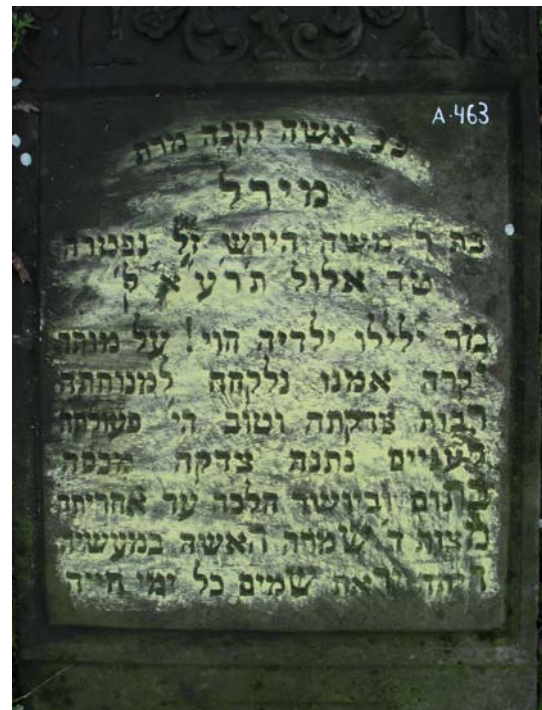 A-463
פנ אשה זקנה מרת
מירל
בת ר' משה הירש ז"ל נפטרה
אלול תרע"א ל'
מר ילילו ילדיה הוי! על מותה
יקרה אמנו נלקחה למנוחתה
רבות צדקתה וטוב הי' פעולתה
לעניים נתנה צדקה מכסה
בתום וביושר הלכה עד אחריתה
מצות ד' שמרה האשה במעשיה
יראת שמים כל ימי חייה